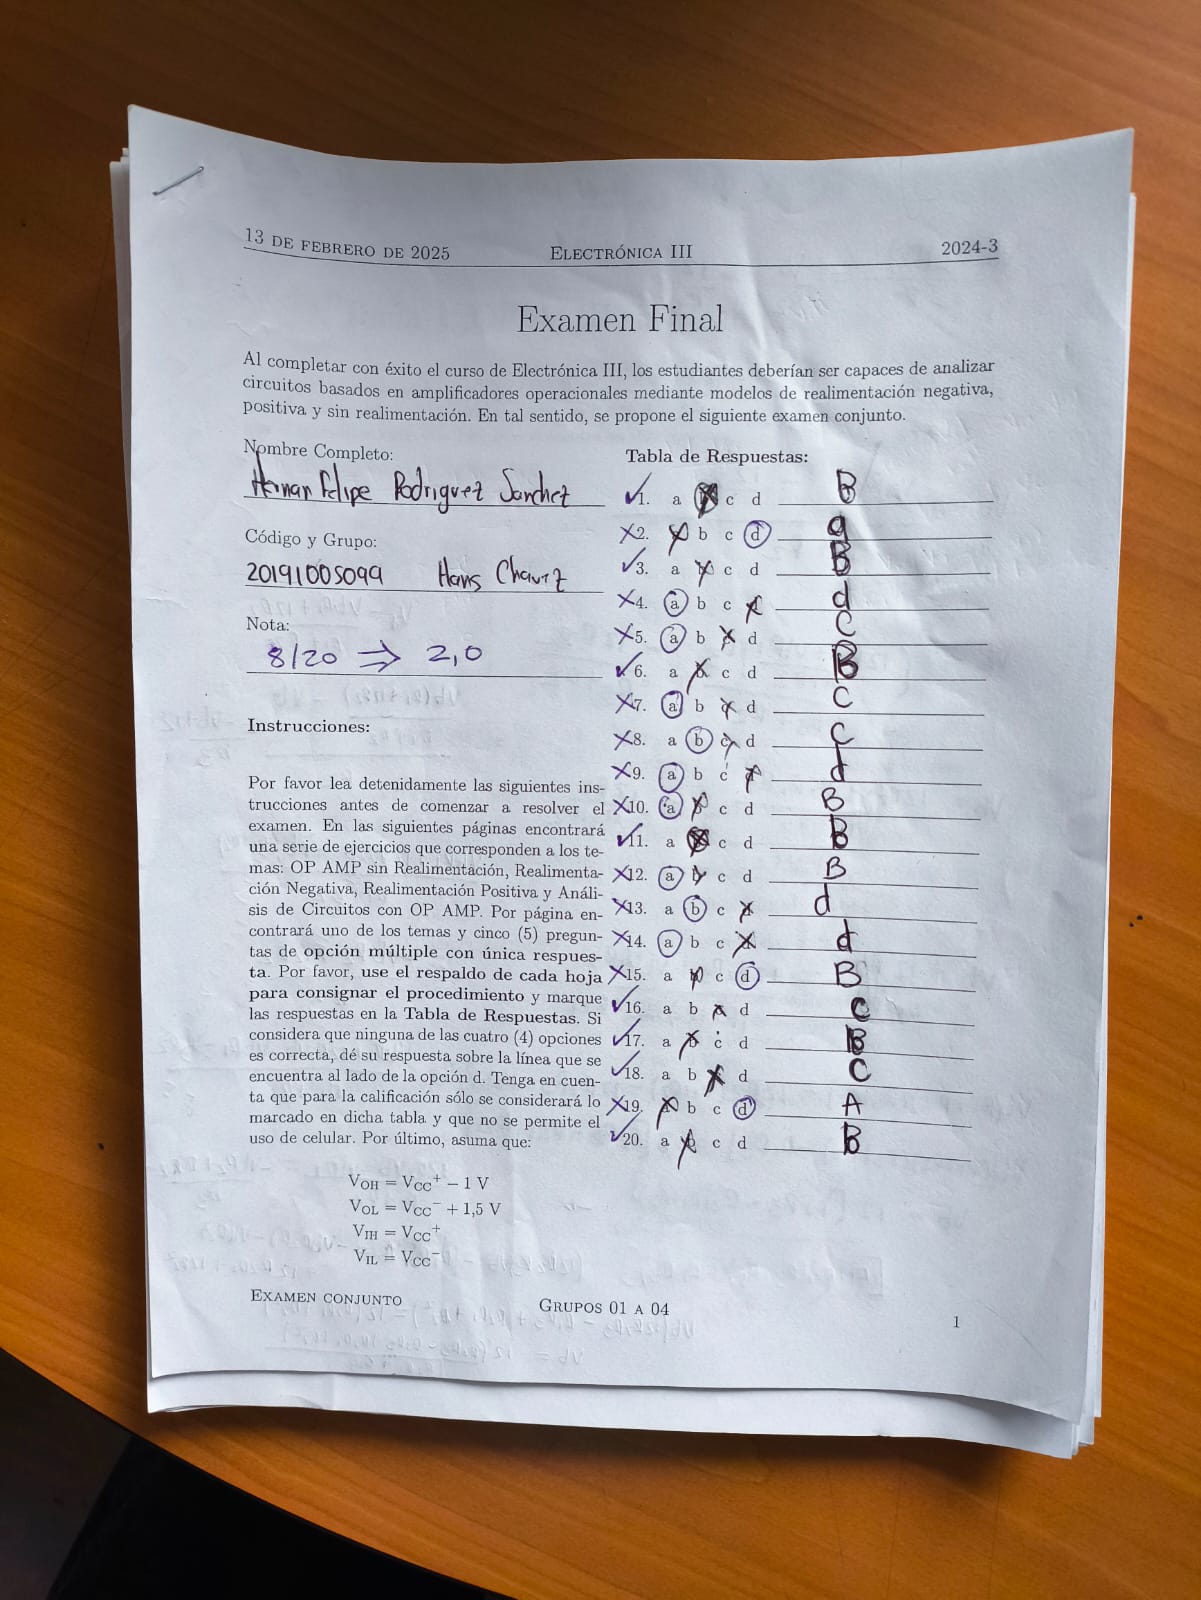 13 DE FEBRERO DE 2025 ELECTRÓNICA III 2024-3
Examen Final
Al completar con éxito el curso de Electrónica III, los estudiantes deberían ser capaces de analizar
circuitos basados en amplificadores operacionales mediante modelos de realimentación negativa,
positiva y sin realimentación. En tal sentido, se propone el siguiente examen conjunto.
Nombre Completo:
Hernan Felipe Rodriguez Sanchez
Código y Grupo:
20191005099 Hans Chavez
Nota:
8/20 ⇒ 2,0
Instrucciones:
Por favor lea detenidamente las siguientes ins-
trucciones antes de comenzar a resolver el
examen. En las siguientes páginas encontrará
una serie de ejercicios que corresponden a los te-
mas: OP AMP sin Realimentación, Realimenta-
ción Negativa, Realimentación Positiva y Análi-
sis de Circuitos con OP AMP. Por página en-
contrará uno de los temas y cinco (5) pregun-
tas de opción múltiple con única respues-
ta. Por favor, use el respaldo de cada hoja
para consignar el procedimiento y marque
las respuestas en la Tabla de Respuestas. Si
considera que ninguna de las cuatro (4) opciones
es correcta, dé su respuesta sobre la línea que se
encuentra al lado de la opción d. Tenga en cuen-
ta que para la calificación sólo se considerará lo
marcado en dicha tabla y que no se permite el
uso de celular. Por último, asuma que:
V_OH = V_CC⁺ − 1 V
V_OL = V_CC⁻ + 1,5 V
V_IH = V_CC⁺
V_IL = V_CC⁻
Tabla de Respuestas:
✓1. a b c d B
X2. a b c d a
✓3. a b c d B
X4. a b c d d
X5. a b c d C
✓6. a b c d B
X7. a b c d C
X8. a b c d C
X9. a b c d d
X10. a b c d B
✓11. a b c d B
X12. a b c d B
X13. a b c d d
X14. a b c d d
X15. a b c d B
✓16. a b c d C
✓17. a b c d B
✓18. a b c d C
X19. a b c d A
✓20. a b c d B
EXAMEN CONJUNTO GRUPOS 01 A 04 1